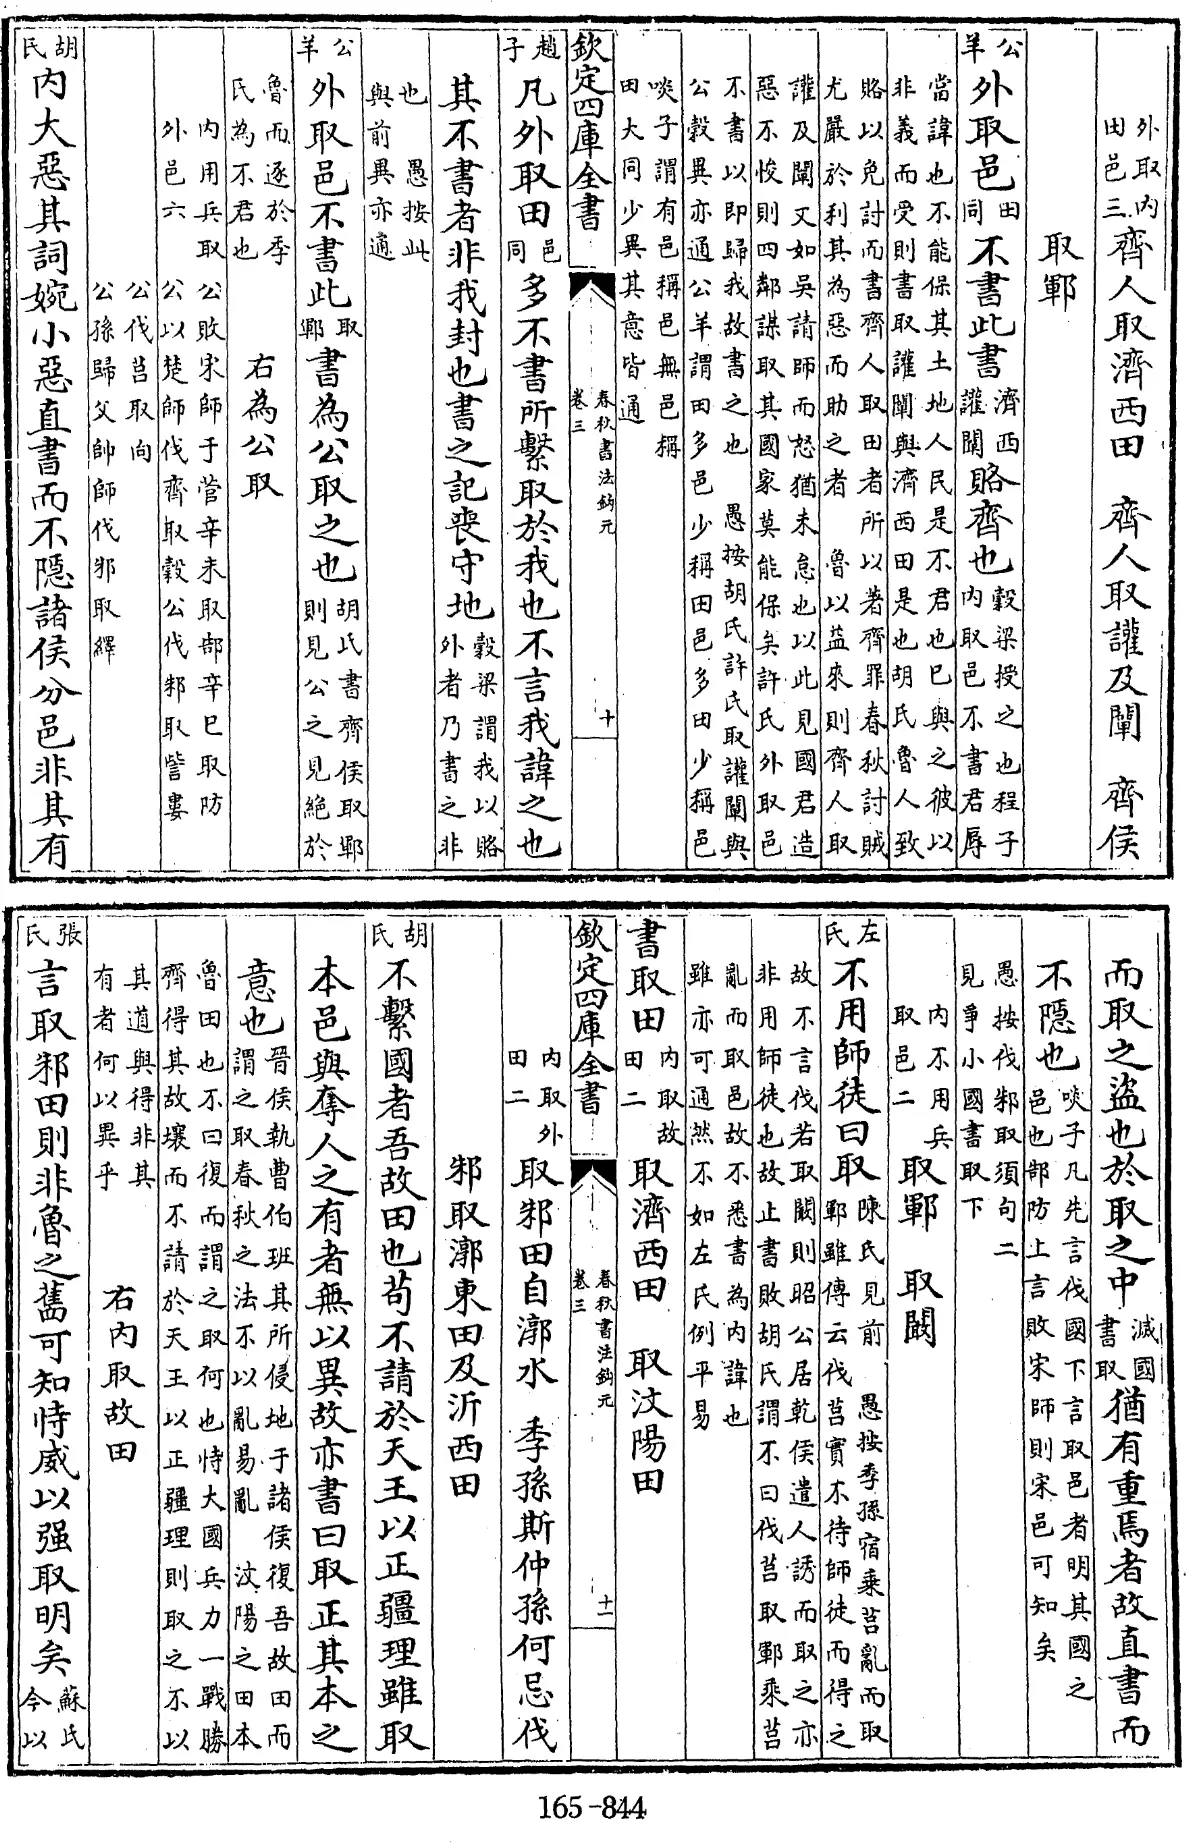 外取内
田邑三
齊人取濟西田　齊人取讙及闡　齊侯
取鄆
公羊
外取邑
田同
不書此書
濟西
讙闡
賂齊也
穀梁授之也程子
内取邑不書君辱
當諱也不能保其土地人民是不君也已與之彼以
非義而受則書取讙闡與濟西田是也胡氏魯人致
賂以免討而書齊人取田者所以著齊罪春秋討賊
尤嚴於利其為惡而助之者　魯以益來則齊人取
讙及闡又如吳請師而怒猶未怠也以此見國君造
惡不悛則四鄰謀取其國家莫能保矣許氏外取邑
不書以即歸我故書之也　愚按胡氏許氏取讙闡與
公穀異亦通公羊謂田多邑少稱田邑多田少稱邑
啖子謂有邑稱邑無邑稱
田大同少異其意皆通
欽定四庫全書
春秋書法鈎元
卷三
十
趙子
凡外取田
邑同
多不書所繫取於我也不言我諱之也
其不書者非我封也書之記喪守地
穀梁謂我以賂
外者乃書之非
也　愚按此
與前異亦通
公羊
外取邑不書此
取鄆
書為公取之也
胡氏書齊侯取鄆
則見公之見絶於
魯而逐於季
氏為不君也
右為公取
内用兵取
外邑六
公敗宋師于菅辛未取郜辛巳取防
公以楚師伐齊取穀公伐邾取訾婁
公伐莒取向
公孫歸父帥師伐邾取繹
胡氏
内大惡其詞婉小惡直書而不隱諸侯分邑非其有
而取之盜也於取之中
滅國
書取
猶有重焉者故直書而
不隱也
啖子凡先言伐國下言取邑者明其國之
邑也郜防上言敗宋師則宋邑可知矣
愚按伐邾取須句二
見爭小國書取下
内不用兵
取邑二
取鄆　取闞
左氏
不用師徒曰取
陳氏見前　愚按季孫宿乘莒亂而取
鄆雖傳云伐莒實不待師徒而得之
故不言伐若取闞則昭公居乾侯遣人誘而取之亦
非用師徒也故止書敗胡氏謂不曰伐莒取鄆乘莒
亂而取邑故不悉書為内諱也
雖亦可通然不如左氏例平易
書取田
内取故
田二
取濟西田　取汶陽田
欽定四庫全書
春秋書法鈎元
卷三
十一
内取外
田二
取邾田自漷水　季孫斯仲孫何忌伐
邾取漷東田及沂西田
胡氏
不繫國者吾故田也苟不請於天王以正疆理雖取
本邑與奪人之有者無以異故亦書曰取正其本之
意也
晉侯執曹伯班其所侵地于諸侯復吾故田而
謂之取春秋之法不以亂易亂　汶陽之田本
魯田也不曰復而謂之取何也恃大國兵力一戰勝
齊得其故壤而不請於天王以正疆理則取之不以
其道與得非其
有者何以異乎
右内取故田
張氏
言取邾田則非魯之舊可知恃威以强取明矣
蘇氏
今以
165-844